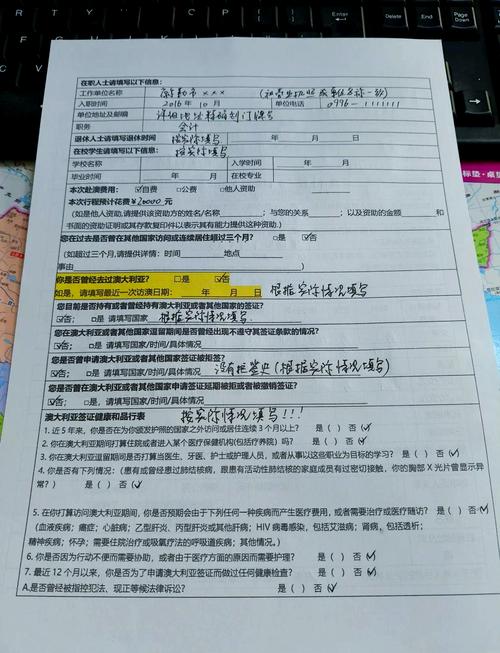 在职人士请填写以下信息：
工作单位名称 库尔勒市××× (和营业执照或单位名称一致)
入职时间 2016年10月 单位电话 0996-1111111
单位地址及邮编 详细地址精确到门牌号
职务 会计
退休人士请填写退休时间 按实际填写 年 月 日
在校学生请填写以下信息： 按实际填写
学校名称 入学时间 年 月
毕业时间 年 月 在校专业
本次赴澳费用： ☑自费 □公费 □他人资助
本次行程预计花费¥20000元
(如是他人资助,请提供该资助方的姓名/名称 ；与您的关系 ；以及资助的金额 和
书面的资助证明或其存款复印件以表示其有能力提供这种资助.)
您在过去是否曾在其他国家访问或连续居住超过三个月？ □是 ☑否
(如超过三个月,请提供详情：时间 地点
事由 )
你是否曾经去过澳大利亚？ □是 ☑否
如是，请填写最近一次访澳日期： 年 月 日 根据实际情况填写
您目前是否持有或者曾经持有澳大利亚或者其他国家的签证？
☑否； □是,请填写国家 根据实际情况填写
您在澳大利亚或者其他国家逗留期间是否曾经出现不遵守其签证条款的情况？
☑否； □是,请填写国家/时间/具体情况
您是否曾申请澳大利亚或者其他国家签证被拒签？
☑否； □是,请填写国家/时间/具体情况 没有拒签史(根据实际情况填写)
您是否曾在澳大利亚或者其他国家申请签证延期被拒或者被撤销签证？
☑否； □是,请填写国家/时间/具体情况
澳大利亚签证健康和品行表 按实际情况填写!!!
1. 近 5 年来，你是否在为你颁发护照的国家之外访问或居住连续 3 个月以上？ 是（ ）否（✓
2. 你在澳大利亚期间打算住院或者进入某个医疗保健机构(包括疗养院）吗？ 是（ ）否（✓
3. 你在澳大利亚逗留期间是否打算当医生、牙医、护士或护理员，或者从事以这些职业为目标的学习？ 是（ ）否（✓
4. 你是否有下列情况：(患有或曾经患过肺结核病，跟患有活动性肺结核的家庭成员有过密切接触，你的胸部 X 光片曾显示异
常？ 是（ ）否（✓
5. 在你打算访问澳大利亚期间，你是否预期会由于下列任何一种疾病而产生医疗费用，或者需要治疗或医疗随访？ 是（ ）否（✓
(血液疾病；癌症；心脏病；乙型肝炎、丙型肝炎或其他肝病；HIV 病毒感染，包括艾滋病；肾病，包括透析；
精神疾病；怀孕；需要住院治疗或吸氧疗法的呼吸道疾病；其他情况。)
6. 你是否因为行动不便而需要协助，或者由于医疗方面的原因而需要护理？ 是（ ）否（✓
7. 最近 12 个月以来，你是否为了申请澳大利亚签证而做过任何健康检查？ 是（ ）否（✓
A.是否曾经被指控犯法、现正等候法律诉讼？ 是（ ）否（✓
Enter
Delete
End